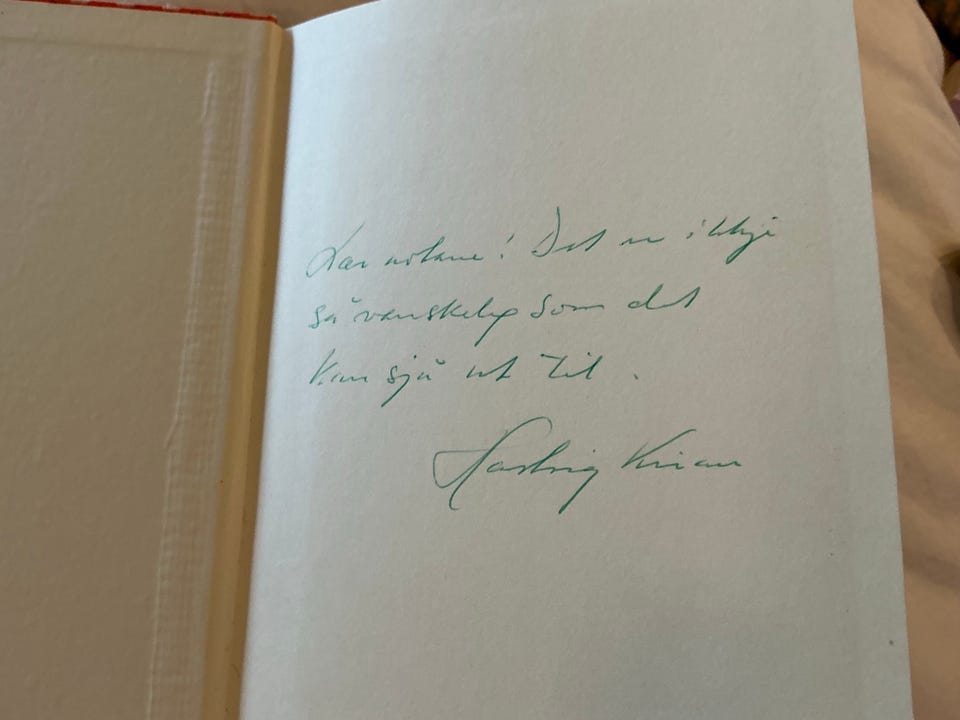 Lær notane! Det er ikkje
så vanskeleg som det
kan sjå ut til.
Hartvig Kiran